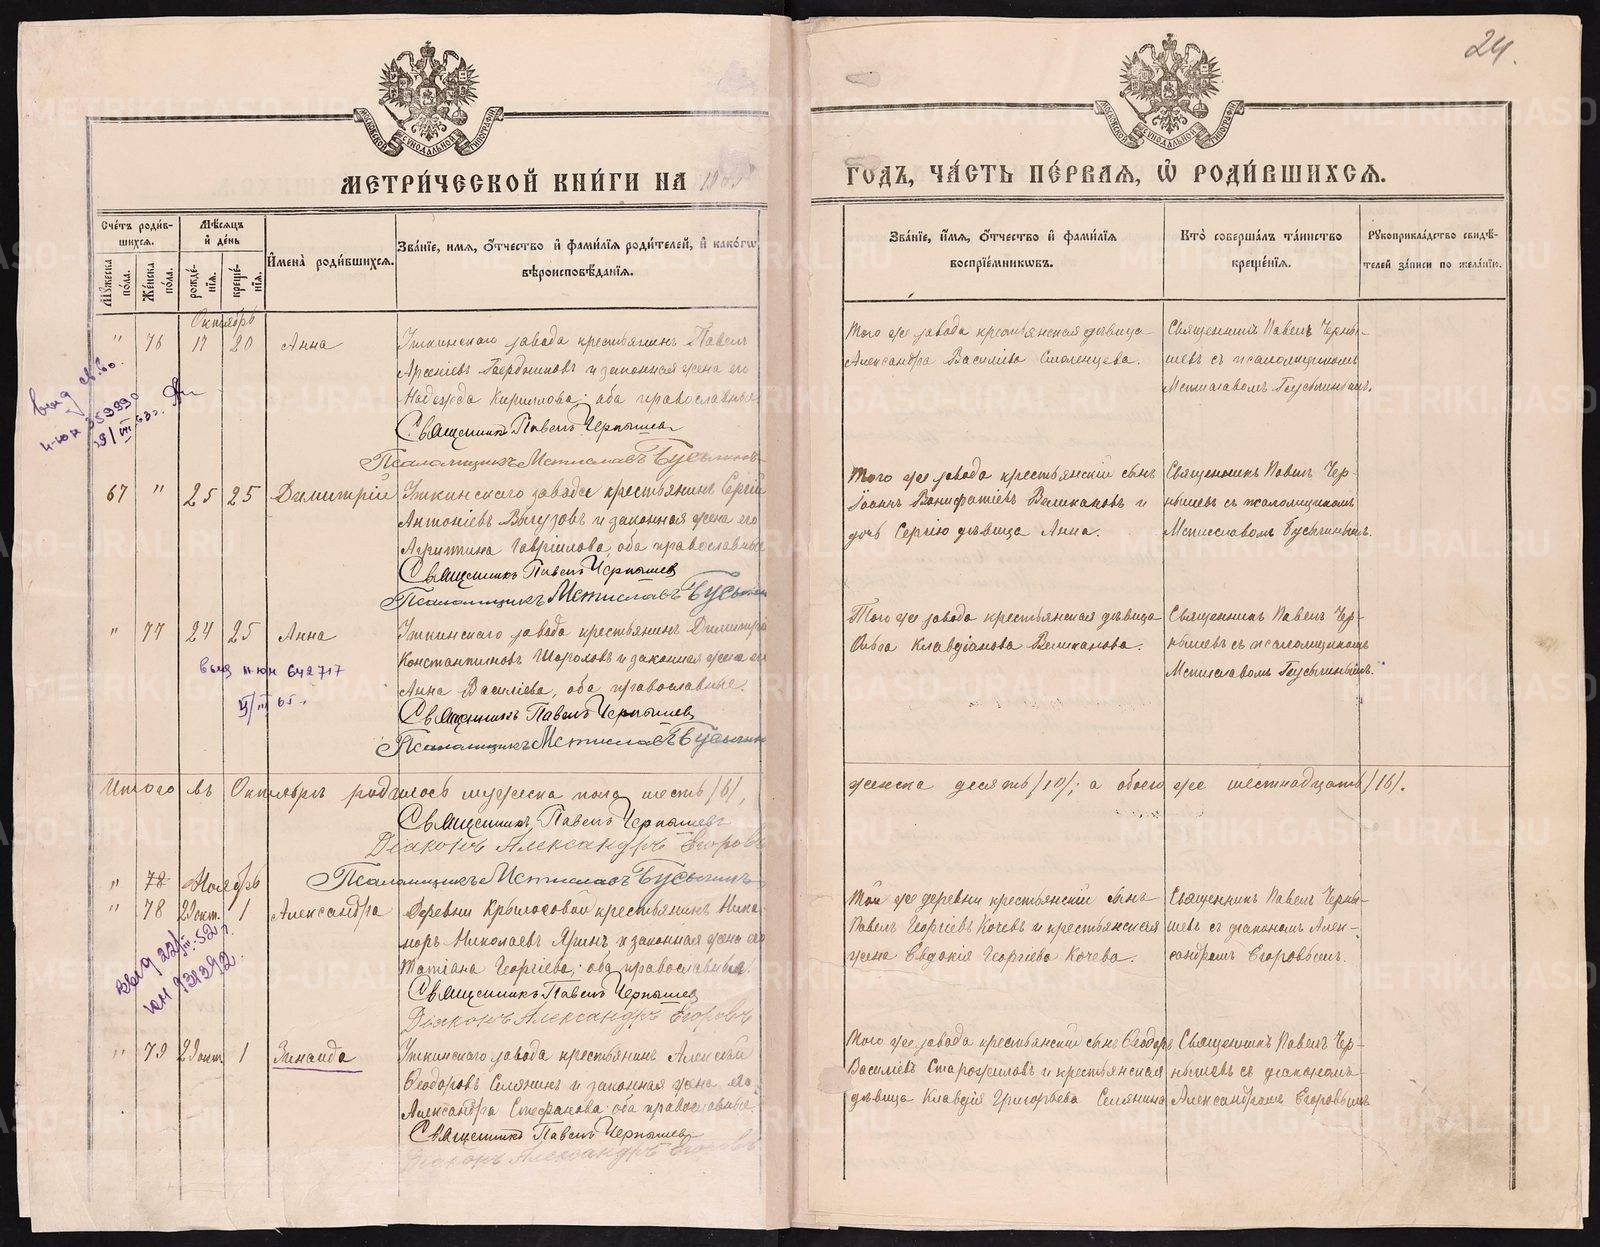 24.
МЕТРИ́ЧЕСКОЙ КНИ́ГИ НА
ГОДЪ, ЧА́СТЬ ПЕ́РВАЯ, Ѡ҆ РОДИ́ВШИХСѦ.
Сче́тъ роди́в-
шихся.
Мѣ́сяцъ
и҆ де́нь
Мꙋ́жеска по́ла.
Же́нска по́ла.
рожде́-нїѧ.
креще́-нїѧ.
И҆мена̀ роди́вшихсѧ.
Зва́нїе, имѧ, ѻ҆́тчество и҆ фами́лїѧ роди́телей, и҆ како́гѡ
вѣроисповѣ́данїѧ.
Зва́нїе, и҆́мѧ, ѻ҆́тчество и҆ фами́лїѧ
воспрїе́мникѡвъ.
Кто̀ соверша́лъ та́инство
креще́нїѧ.
Рꙋкоприкла́дство свидѣ́-
телей за́писи по жела́нїю.
Октябрь
" 76 17 20 Анна
Уткинскаго завода крестьянинъ Павелъ
Арсеніевъ Бердниковъ и законная жена его
Надежда Кириллова; оба православные
Священникъ Павелъ Чернышев
Псаломщикъ Мстиславъ Бусыгинъ
Того же завода крестьянская дѣвица
Александра Василіева Смоленцева.
Священникъ Павелъ Черны-
шевъ съ псаломщикомъ
Мстиславомъ Бусыгинымъ.
выд св. во
359990
29/VII 63 г.
67 " 25 25 Димитрій
Уткинскаго завода крестьянинъ Сергій
Антоніевъ Выгузовъ и законная жена его
Агриппина Гавріилова, оба православные
Священникъ Павелъ Чернышев
Псаломщикъ Мстиславъ Бусыгин
Того же завода крестьянскій сынъ
Іоаннъ Вонифатіевъ Великановъ и
дочь Сергію дѣвица Анна.
Священникъ Павелъ Чер-
нышевъ съ псаломщикомъ
Мстиславомъ Бусыгинымъ.
" 77 24 25 Анна
Уткинскаго завода крестьянинъ Димитрій
Константиновъ Шороховъ и законная жена его
Анна Василіева, оба православные.
Священникъ Павелъ Чернышев
Псаломщикъ Мстиславъ Бусыгин
Того же завода крестьянская дѣвица
Ольга Клавдіанова Великанова.
Священникъ Павелъ Чер-
нышевъ съ псаломщикомъ
Мстиславомъ Бусыгинымъ.
выд п-юн 642717
/III 65 г.
Итого въ Октябрѣ родилось мужеска пола шесть /6/,
женска десять /10/; а обоего же шестнадцать /16/.
Священникъ Павелъ Чернышевъ
Діаконъ Александръ Егоровъ
Псаломщикъ Мстиславъ Бусыгинъ
" 78 Ноябрь
" 78 29 окт. 1 Александра
Деревни Крылосовой крестьянинъ Ника-
норъ Николаевъ Яринъ и законная жена его
Татіана Георгіева; оба православные.
Священникъ Павелъ Чернышев
Діаконъ Александръ Егоровъ
Той же деревни крестьянскій сынъ
Павелъ Георгіевъ Кочевъ и крестьянская
жена Евдокія Георгіева Кочева.
Священникъ Павелъ Черны-
шевъ съ діакономъ Алек-
сандромъ Егоровымъ.
выд 22/III. 52 г.
юн 931392.
" 79 29 окт. 1 Зинаида
Уткинскаго завода крестьянинъ Алексѣй
Ѳеодоровъ Селянинъ и законная жена его
Александра Стефанова; оба православные
Священникъ Павелъ Чернышевъ
Діаконъ Александръ Егоровъ
Того же завода крестьянскій сынъ Ѳеодоръ
Василіевъ Старожиловъ и крестьянская
дѣвица Клавдія Григорьева Селянина
Священникъ Павелъ Чер-
нышевъ съ діакономъ
Александромъ Егоровымъ
METRIKI.GASO-URAL.RU